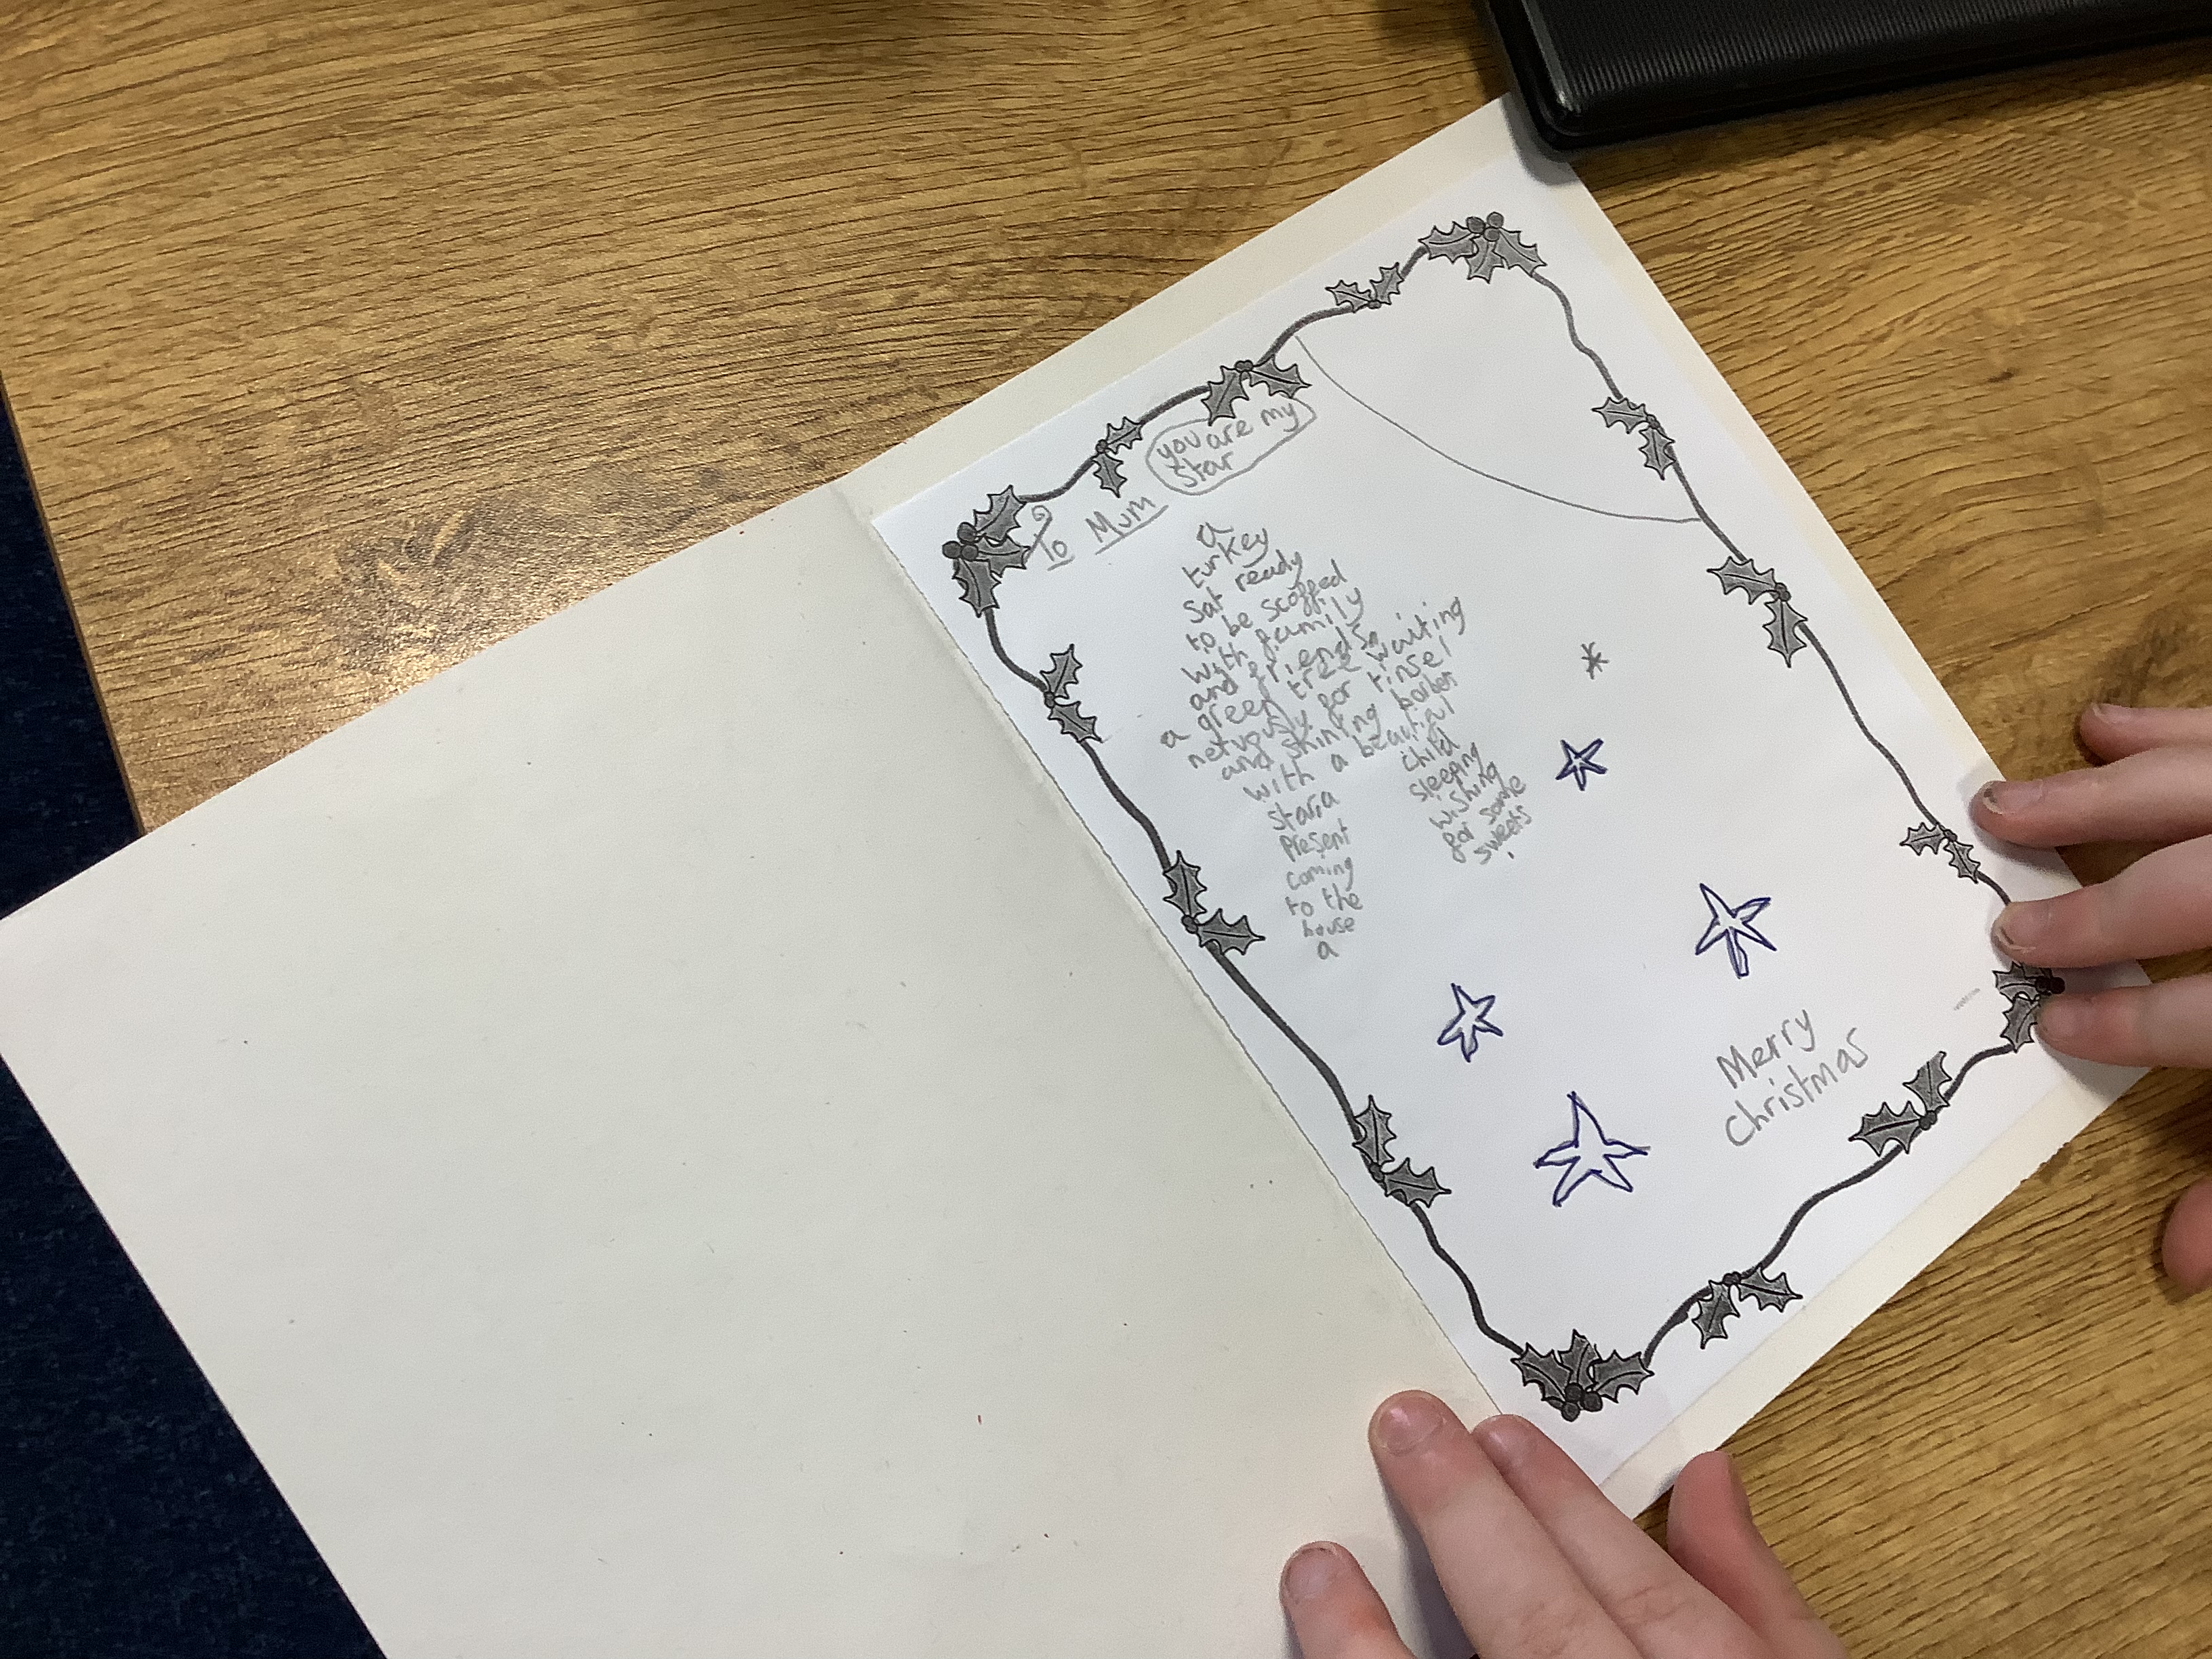 you are my
star
To Mum
a
turkey
sat ready
to be scoffed
with family
and friends,
a green tree waiting
nervously for tinsel
and shining borbers
with a beautiful
star, a
present
coming
to the
house
a
child
sleeping
wishing
for some
sweets
Merry
christmas